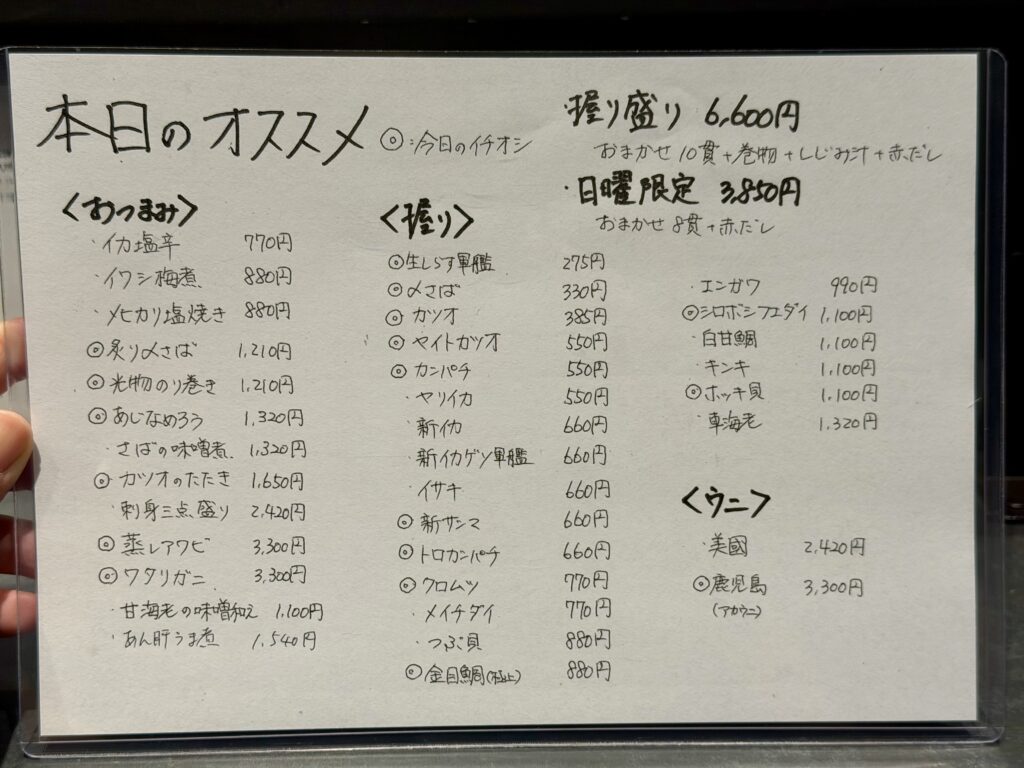 本日のオススメ ◎:今日のイチオシ
・握り盛り 6,600円
おまかせ 10貫+巻物+しじみ汁+赤だし
・日曜限定 3,850円
おまかせ 8貫+赤だし
<おつまみ>
・イカ塩辛 770円
・イワシ梅煮 880円
・メヒカリ塩焼き 880円
◎炙り〆さば 1,210円
◎光物のり巻き 1,210円
◎あじなめろう 1,320円
・さばの味噌煮 1,320円
◎カツオのたたき 1,650円
・刺身三点盛り 2,420円
◎蒸しアワビ 3,300円
◎ワタリガニ 3,300円
・甘海老の味噌和え 1,100円
・あん肝うま煮 1,540円
<握り>
◎生しらす軍艦 275円
◎〆さば 330円
◎カツオ 385円
◎ヤイトガツオ 550円
◎カンパチ 550円
・ヤリイカ 550円
・新イカ 660円
・新イカゲソ軍艦 660円
・イサキ 660円
◎新サンマ 660円
◎トロカンパチ 660円
◎クロムツ 770円
・メイチダイ 770円
・つぶ貝 880円
◎金目鯛(極上) 880円
・エンガワ 990円
◎シロボシフエダイ 1,100円
・白甘鯛 1,100円
・キンキ 1,100円
◎ホッキ貝 1,100円
・車海老 1,320円
<ウニ>
・美國 2,420円
◎鹿児島 3,300円
(アカウニ)